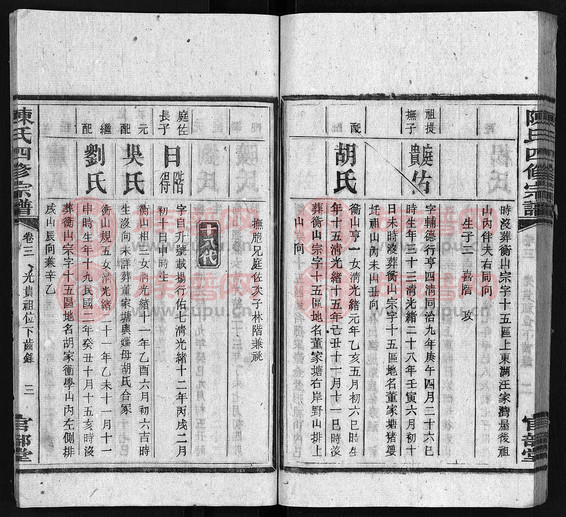 陳氏四修宗譜
官部堂
時沒葬衡山宗字十五區上東湖汪家灣屋後祖
山丙伴夫右同向
生子二 喜階 攻
祖提
撫子
庭佑
貴
字輔德行亨四清同治九年庚午四月二十六巳
時生年三十三清光緒二十八年壬寅六月初十
日未時沒葬衡山宗字十五區地名董家塘猪
坵祖山丙未山丑向
配
胡氏
衡山亨一女清光緒元年乙亥五月初六巳時生
年十五清光緒十五年己丑十一月十一巳時沒
葬衡山宗字十五區地名董家塘右岸野山排上
山 向
撫胞兄庭佐次子林階兼祧
十八代
庭佐
長子
日階
得
字自升號載揚行佑七清光緒十二年丙戌二月
初十日申時生
元
配
吳氏
衡山相三女清光緒十一年乙酉六月初六吉時
生沒向未詳葬董家塘與嬸母胡氏合冢
繼
配
劉氏
衡山規五女清光緒二十一年乙未十一月十一
申時生年十九民國二年癸丑十月十五亥時沒
葬衡山宗字十五區地名胡家衝學山內左側排
戌山辰向兼辛乙
陳氏四修宗譜
卷三
光貴祖位下齒錄
三
官部堂